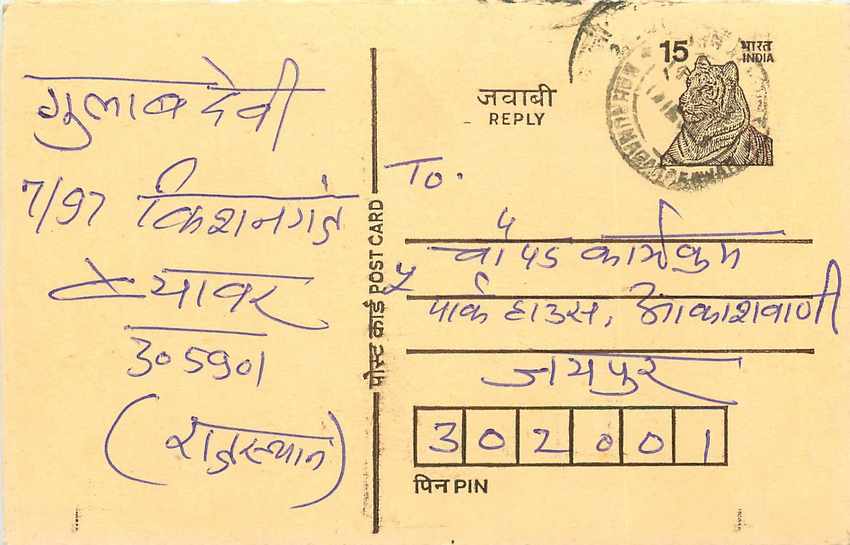 गुलाब देवी
7/97 किशनगंज
ब्यावर
305901
(राजस्थान)
पोस्ट कार्ड POST CARD
जवाबी
REPLY
15
भारत
INDIA
To.
चौपड कार्यक्रम
पार्क हाउस, आकाशवाणी
जयपुर
302001
पिन PIN